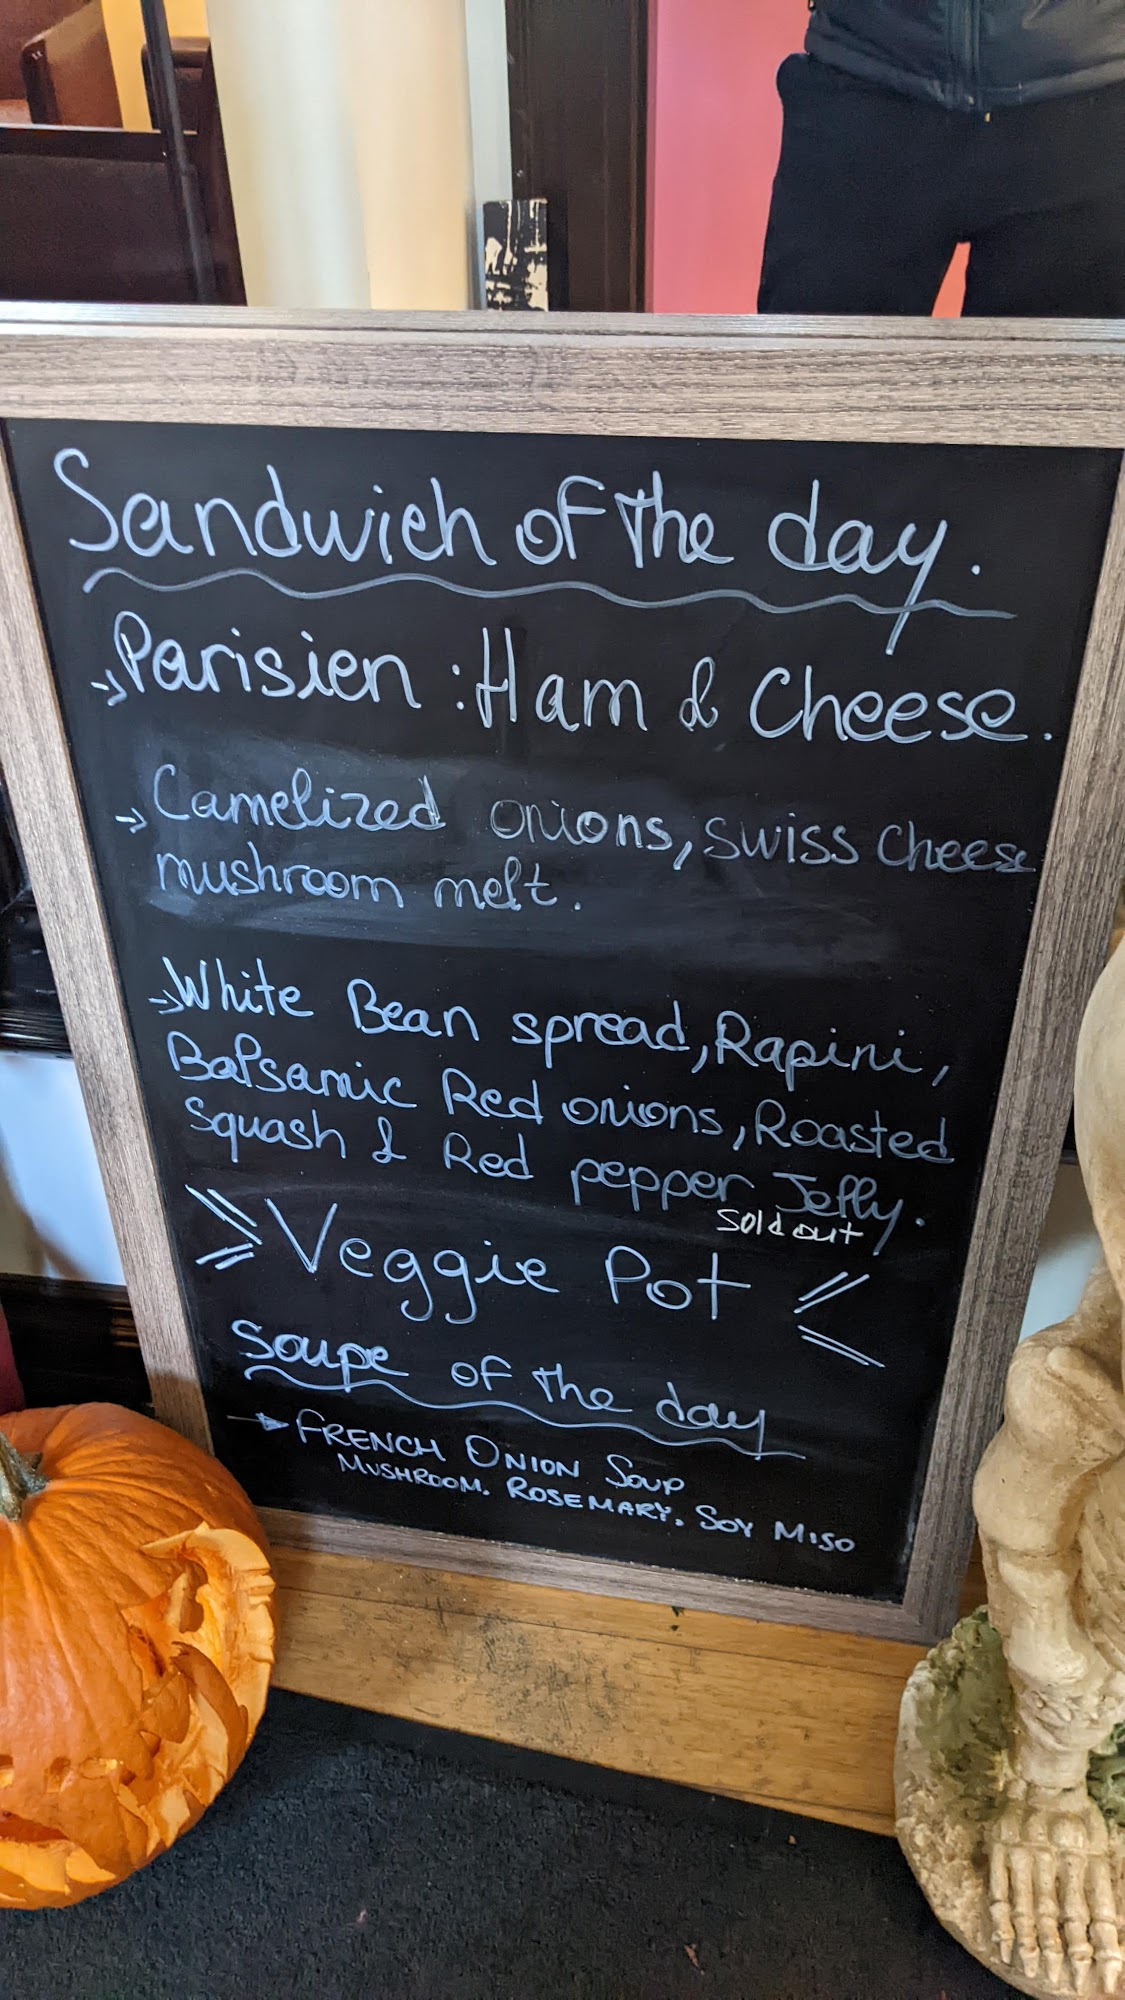 Sandwich of the day.
→ Parisien : Ham & Cheese.
→ Camelized onions, swiss cheese
mushroom melt.
→ White Bean spread, Rapini,
Balsamic Red onions, Roasted
squash & Red pepper Jelly.
Sold out
Veggie Pot
soupe of the day
→ FRENCH ONION SOUP
MUSHROOM. ROSEMARY. SOY MISO